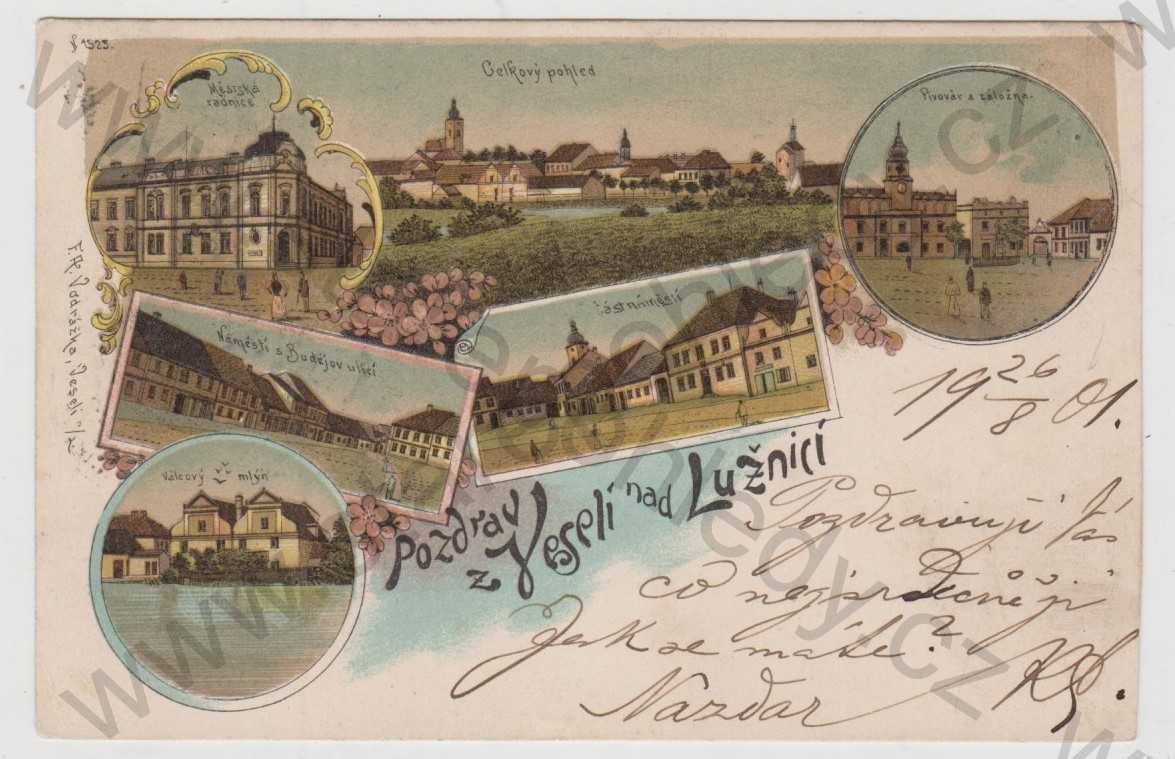 № 1525.
Městská
radnice
Celkový pohled
Pivovár a záložna.
Náměstí s Budějov ulicí
Část náměstí
Válcový mlýn
Pozdrav
z Veselí nad Lužnicí
19 26/8 01.
Pozdravuji Vás
co nejsrdečněji
Jak se máte?
Nazdar